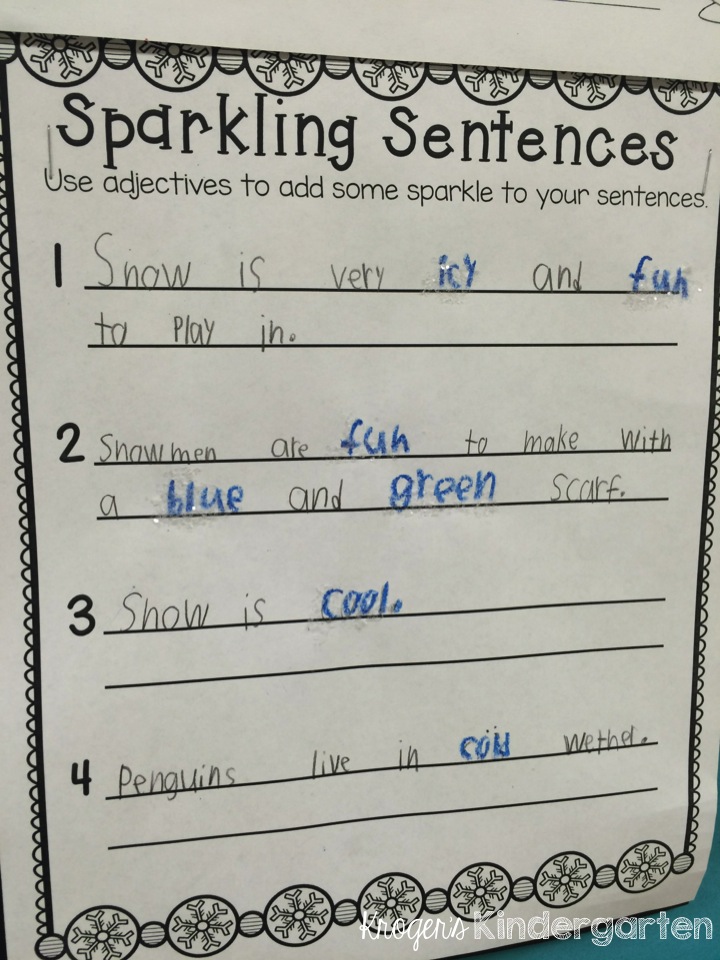 Sparkling Sentences
Use adjectives to add some sparkle to your sentences.
1 Snow is very icy and fun
to play in.
2 Snowmen are fun to make with
a blue and green scarf.
3 Snow is cool.
4 Penguins live in cold wether.
Kroger's Kindergarten